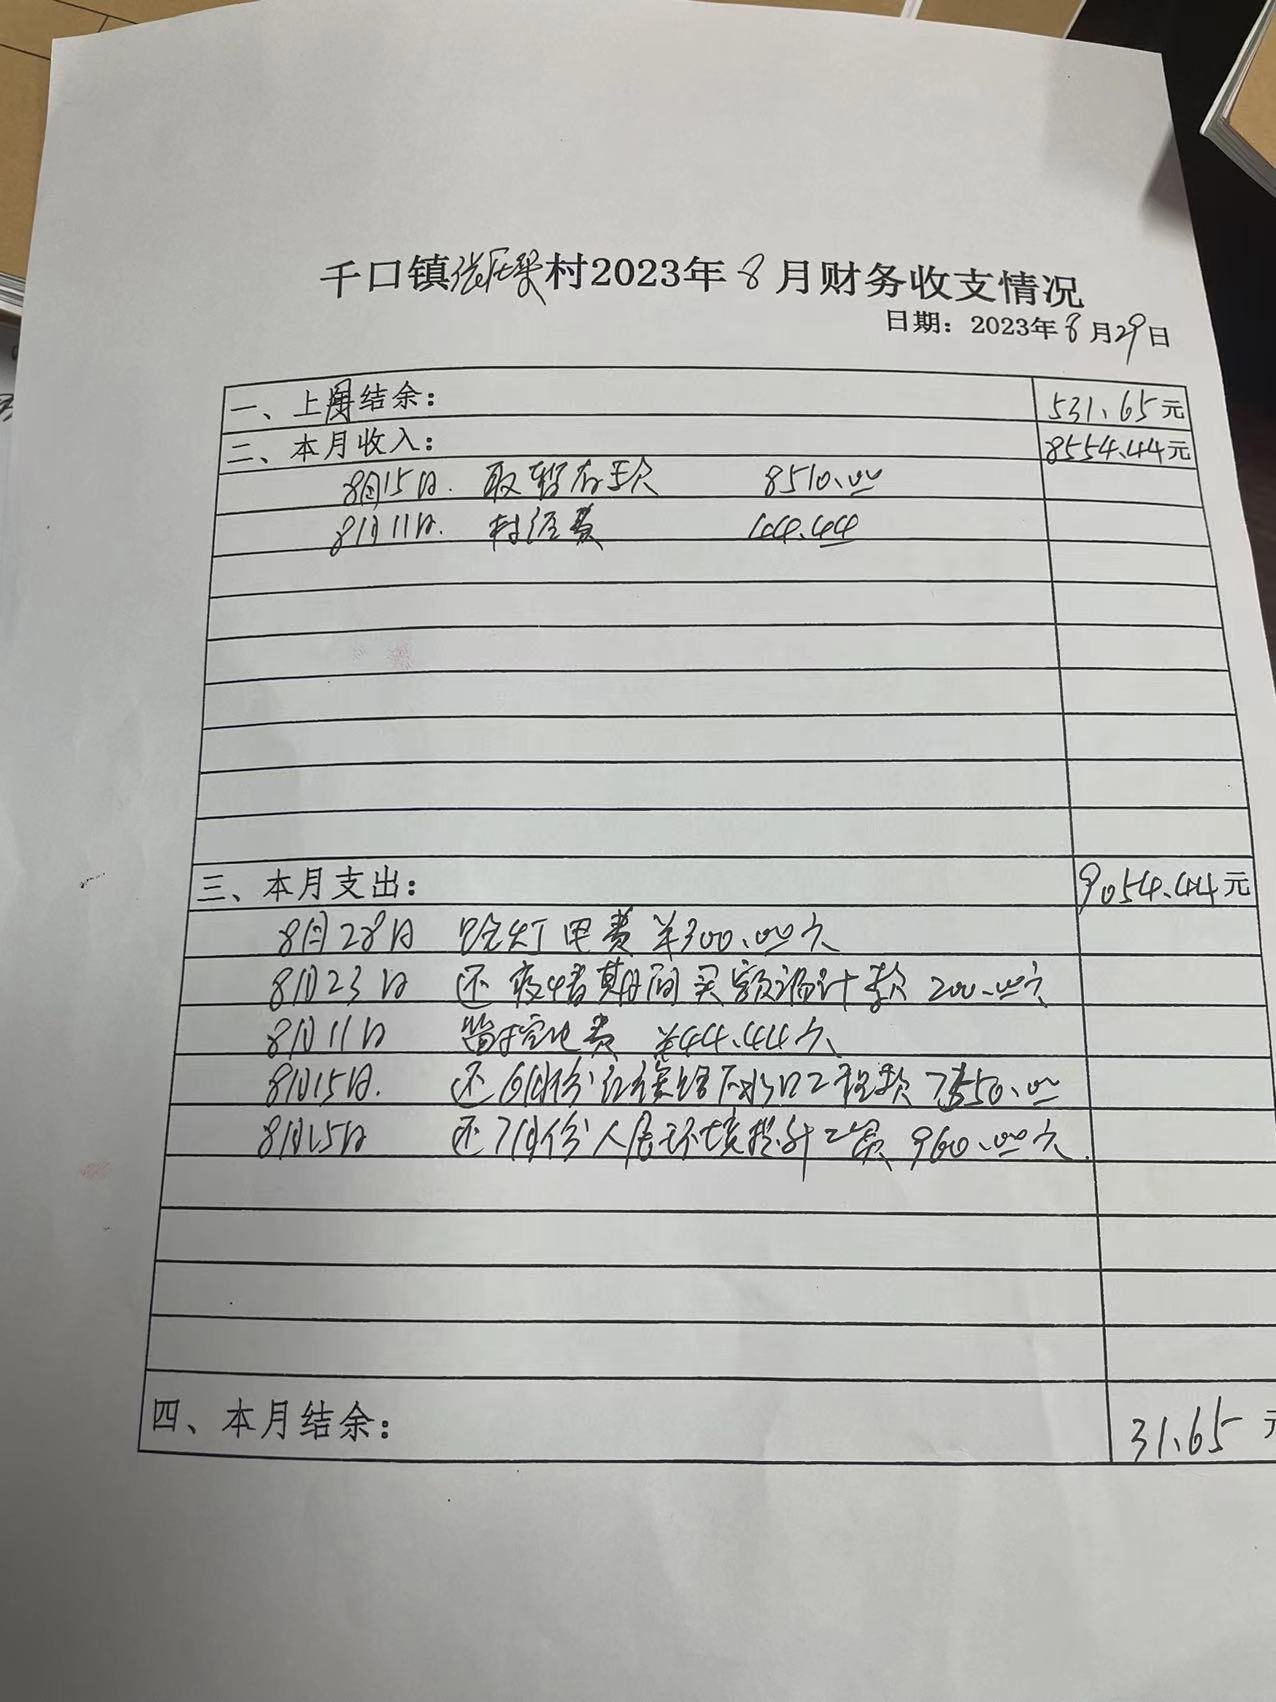 千口镇张庄梁村2023年8月财务收支情况
日期：2023年8月29日
一、上月结余： 531.65元
二、本月收入： 8554.44元
8月15日. 取暂存款 8510.00
8月11日. 村经费 44.44
三、本月支出： 9054.44元
8月28日 路灯电费 ¥300.00元
8月23日 还疫情期间买额温计款 200.00元
8月11日 费 ¥44.44元
8月15日. 还6月份 下水口工程款 7550.00
8月15日 还7月份人居环境提升工资 960.00元
四、本月结余： 31.65 元